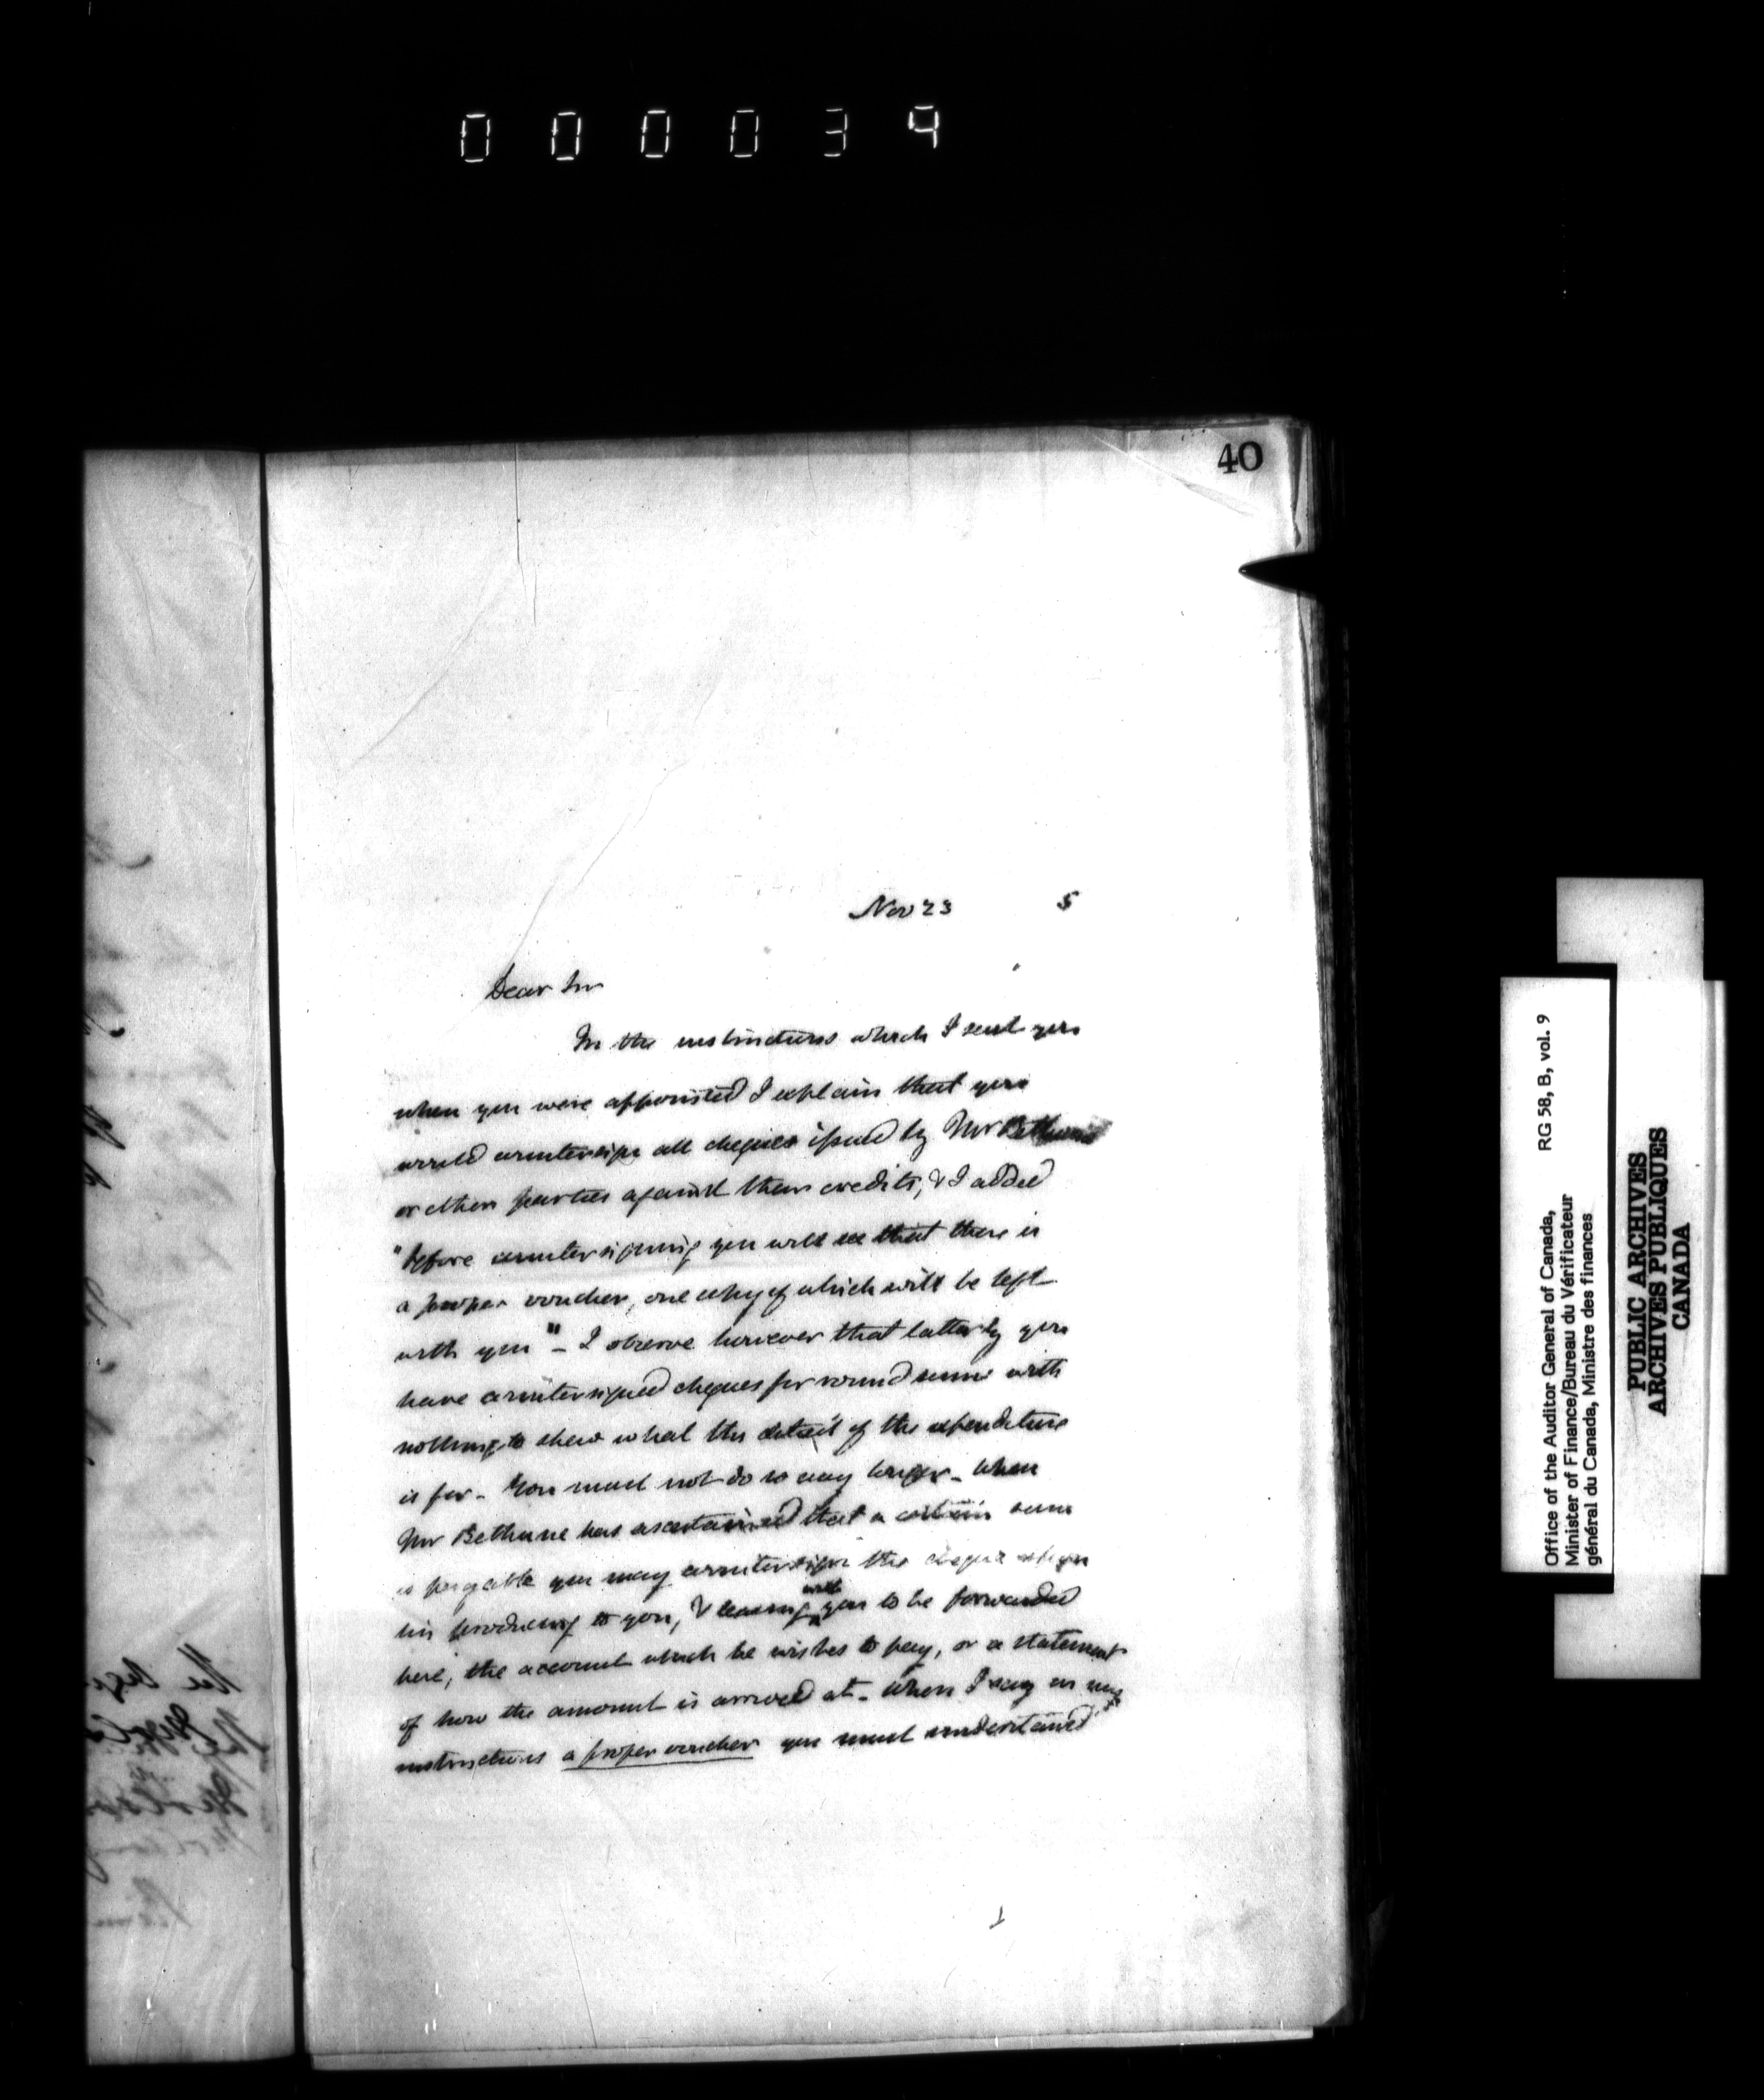 000039
40
Nov 23 5
Dear Sir
In the instructions which I sent you
when you were appointed I explain that you
would countersign all cheques issued by Mr Bethune
or other parties against their credits, & I added
"before countersigning you will see that there is
a proper voucher, one copy of which will be left
with you" - I observe however that latterly you
have countersigned cheques for round sums with
nothing to shew what the detail of the expenditure
is for - You must not do so any longer - When
Mr Bethune has ascertained that a certain sum
is payable you may countersign the cheque upon
his producing to you, & leaving with you to be forwarded
here, the account which he wishes to pay, or a statement
of how the amount is arrived at - When I say in my
instructions a proper voucher you must understand
1
Office of the Auditor General of Canada, RG 58, B, vol. 9
Minister of Finance/Bureau du Vérificateur
général du Canada, Ministre des finances
PUBLIC ARCHIVES
ARCHIVES PUBLIQUES
CANADA